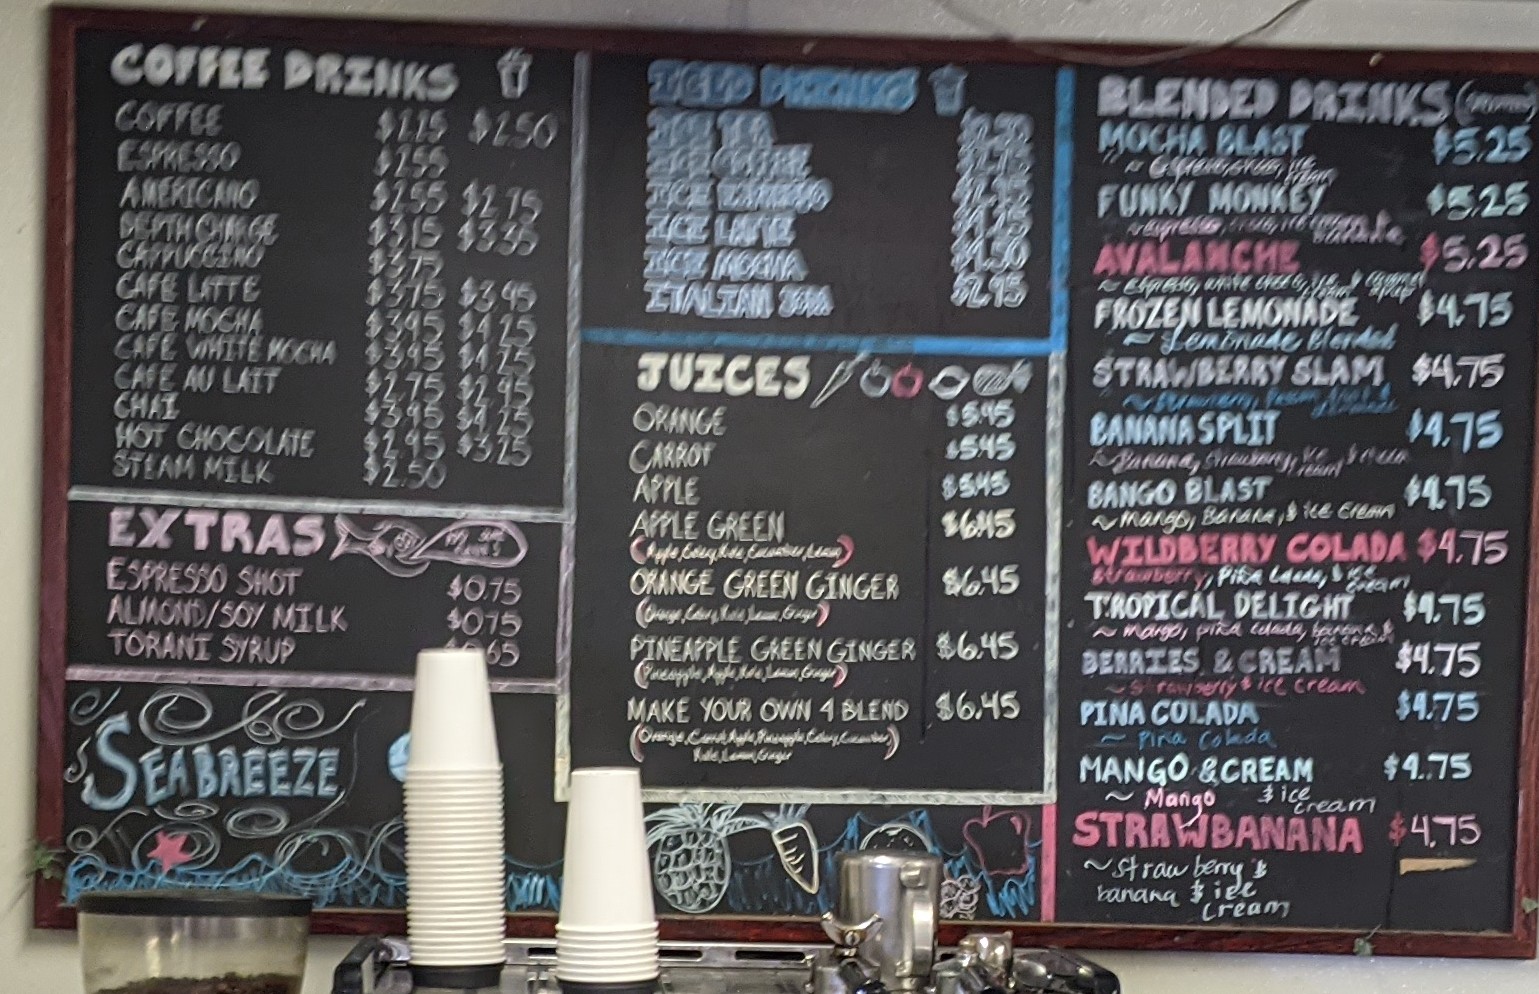 COFFEE DRINKS
COFFEE $2.50
ESPRESSO
AMERICANO $2.75
DEPTH CHARGE $3.15 $3.35
CAPPUCCINO $3.75
CAFE LATTE $3.75 $3.95
CAFE MOCHA $3.95 $4.25
CAFE WHITE MOCHA $3.95 $4.25
CAFE AU LAIT $2.75 $2.95
CHAI $3.95 $4.25
HOT CHOCOLATE $2.95 $3.25
STEAM MILK $2.50
EXTRAS
ESPRESSO SHOT $0.75
ALMOND/SOY MILK $0.75
TORANI SYRUP
SEABREEZE
ICED DRINKS
ICE TEA
ICE COFFEE
ICE ESPRESSO
ICE LATTE
ICE MOCHA $4.50
ITALIAN SODA $2.95
JUICES
ORANGE $5.45
CARROT $5.45
APPLE $5.45
APPLE GREEN $6.45
(Apple, Celery, Kale, Cucumber, Lemon)
ORANGE GREEN GINGER $6.45
(Orange, Celery, Kale, Lemon, Ginger)
PINEAPPLE GREEN GINGER $6.45
(Pineapple, Apple, Kale, Lemon, Ginger)
MAKE YOUR OWN 4 BLEND $6.45
(Orange, Carrot, Apple, Pineapple, Celery, Cucumber
Kale, Lemon, Ginger)
BLENDED DRINKS
MOCHA BLAST $5.25
FUNKY MONKEY $5.25
AVALANCHE $5.25
~ Espresso, white choco, ice cream & caramel syrup
FROZEN LEMONADE $4.75
~ Lemonade Blended
STRAWBERRY SLAM $4.75
BANANA SPLIT $4.75
~Banana, Strawberry, ice cream,
BANGO BLAST $4.75
~ Mango, Banana, & ice cream
WILDBERRY COLADA $4.75
Strawberry, Piña Colada, & ice cream
TROPICAL DELIGHT $4.75
~ Mango, piña colada, banana, & ice cream
BERRIES & CREAM $4.75
~ Strawberry & ice cream
PINA COLADA $4.75
~ Piña Colada
MANGO & CREAM $4.75
~ Mango & ice cream
STRAWBANANA $4.75
~ Strawberry &
banana & ice
cream